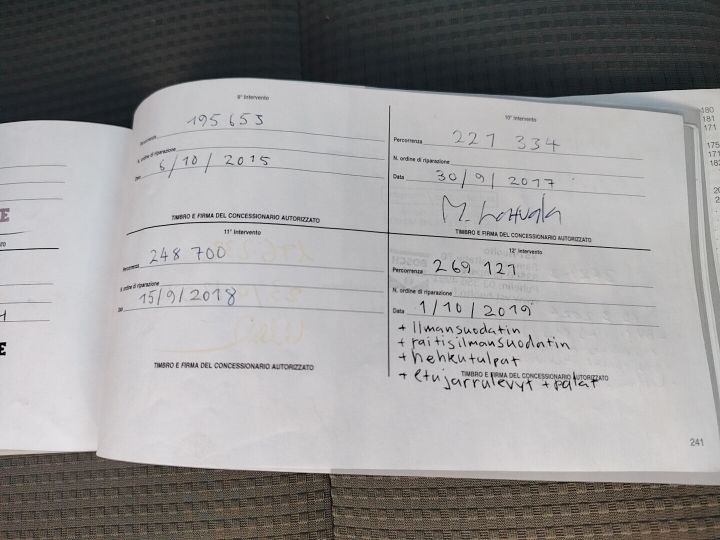 9° Intervento
195 653
Percorrenza
N. ordine di riparazione
Data 6/10/2015
TIMBRO E FIRMA DEL CONCESSIONARIO AUTORIZZATO
10° Intervento
Percorrenza 221 334
N. ordine di riparazione
Data 30/9/2017
TIMBRO E FIRMA DEL CONCESSIONARIO AUTORIZZATO
11° Intervento
Percorrenza 248 700
N. ordine di riparazione
Data 15/9/2018
TIMBRO E FIRMA DEL CONCESSIONARIO AUTORIZZATO
12° Intervento
Percorrenza 269 121
N. ordine di riparazione
Data 1/10/2019
+ ilmansuodatin
+ raitisilmansuodatin
+ hehkutulpat
+ etujarrulevyt + palat
TIMBRO E FIRMA DEL CONCESSIONARIO AUTORIZZATO
241
180
181
171
175
171